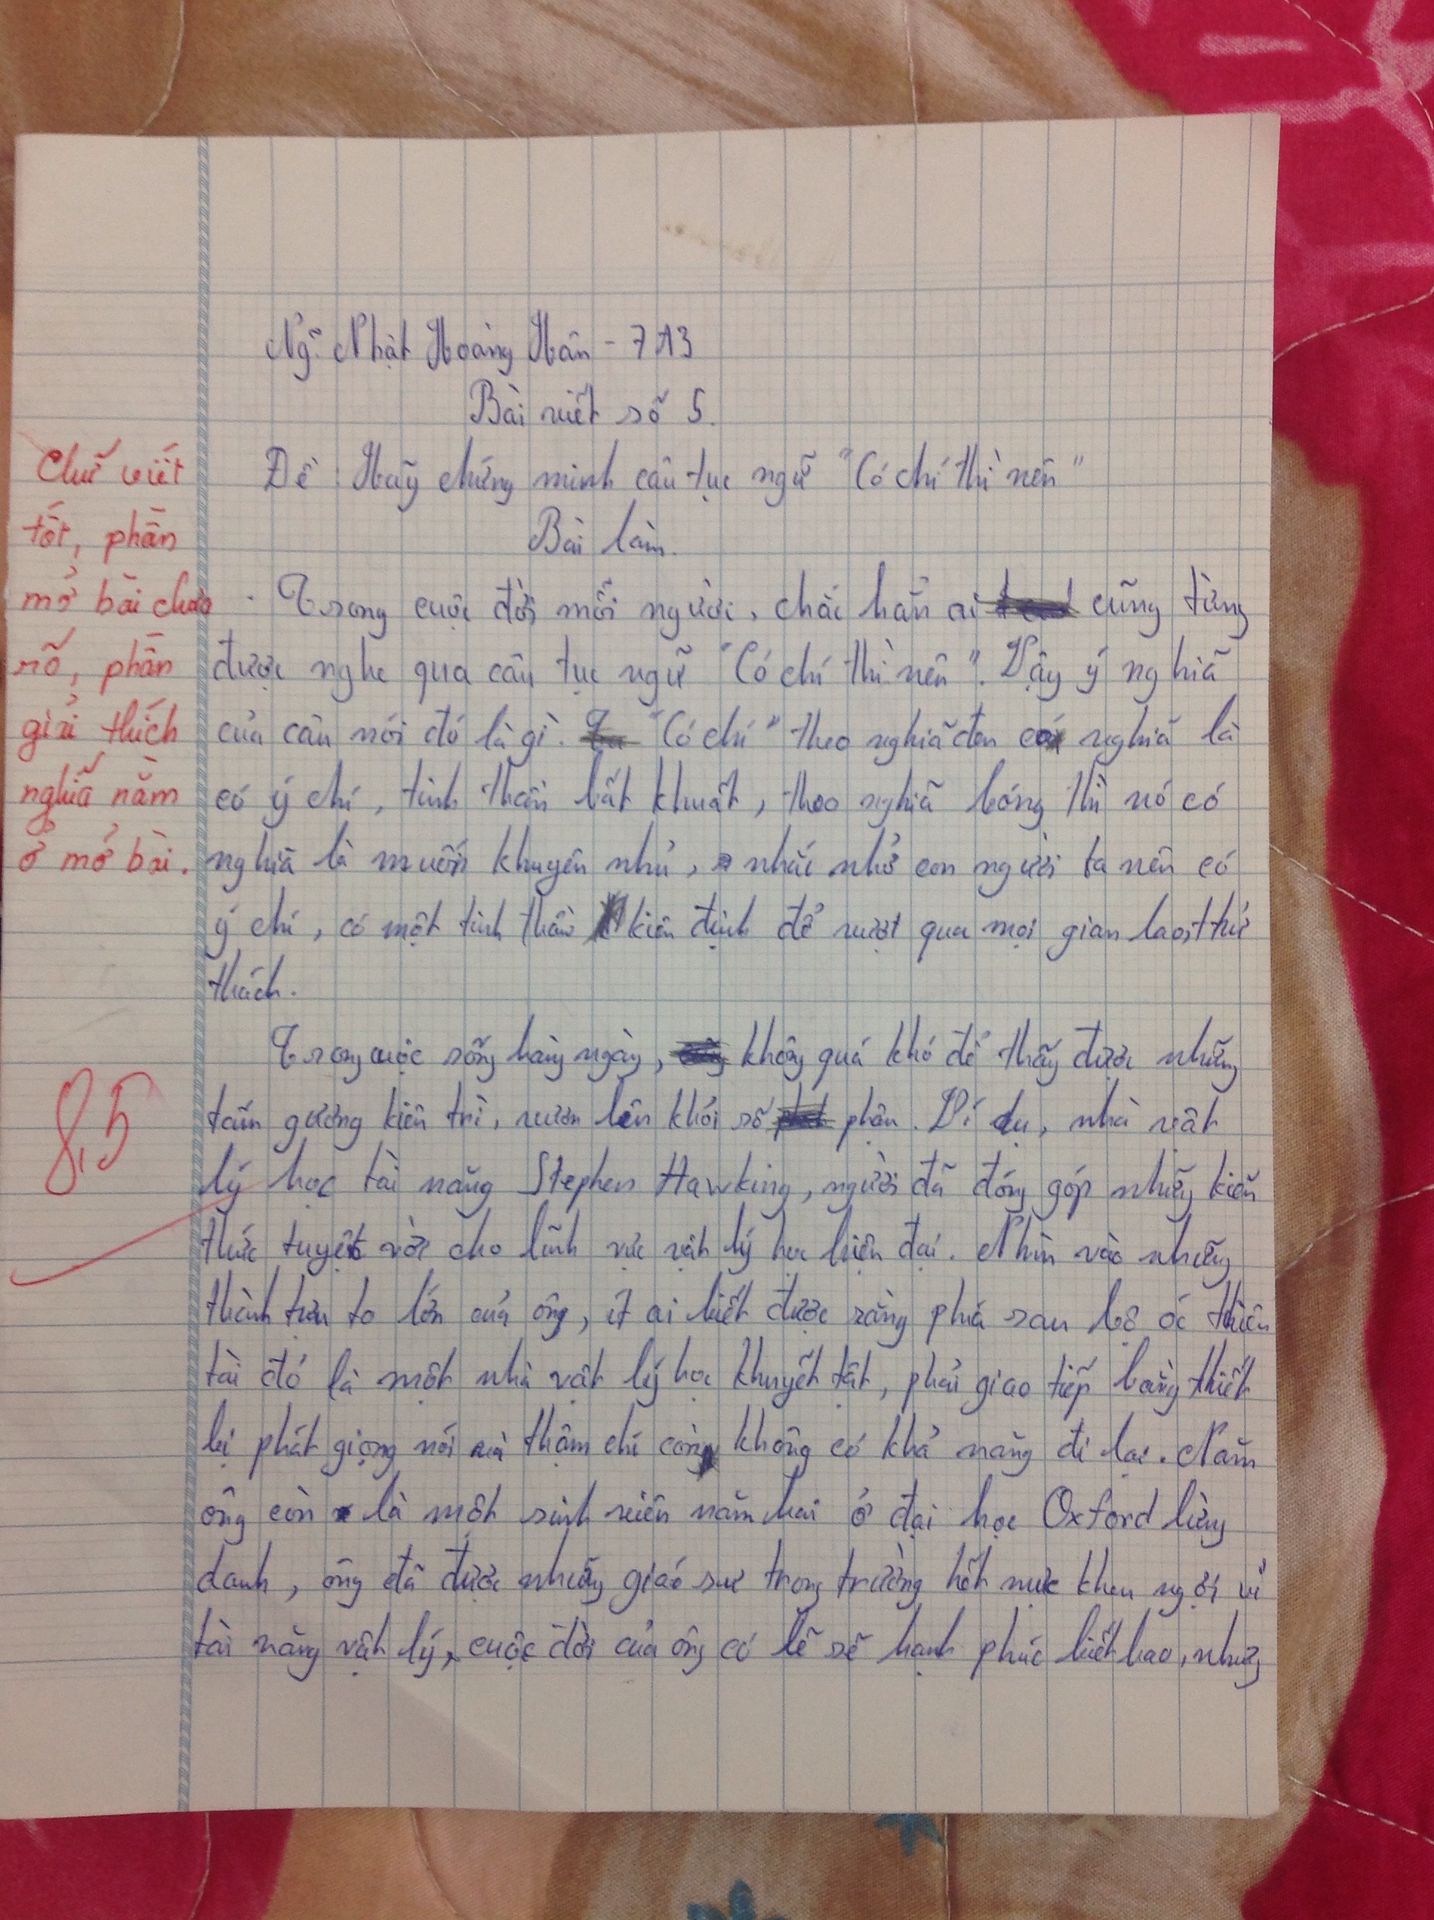 Ng̃. Nhật Hoàng Hân - 7A3
Bài viết số 5.
Đề : Hãy chứng minh câu tục ngữ "Có chí thì nên"
Bài làm.
Chữ viết
tốt, phần
mở bài chưa
rõ, phần
giải thích
nghĩa nằm
ở mở bài.
Trong cuộc đời mỗi người, chắc hẳn ai cũng từng
được nghe qua câu tục ngữ "Có chí thì nên". Vậy ý nghĩa
của câu nói đó là gì. "Có chí" theo nghĩa đen có nghĩa là
có ý chí, tinh thần bất khuất, theo nghĩa bóng thì nó có
nghĩa là muốn khuyên nhủ, nhắc nhở con người ta nên có
ý chí, có một tinh thần kiên định để vượt qua mọi gian lao, thử
thách.
Trong cuộc sống hàng ngày, không quá khó để thấy được những
tấm gương kiên trì, vươn lên khỏi số phận. Ví dụ, nhà vật
lý học tài năng Stephen Hawking, người đã đóng góp những kiến
thức tuyệt vời cho lĩnh vực vật lý học hiện đại. Nhìn vào những
thành tựu to lớn của ông, ít ai biết được rằng phía sau bộ óc thiên
tài đó là một nhà vật lý học khuyết tật, phải giao tiếp bằng thiết
bị phát giọng nói và thậm chí còn không có khả năng đi lại. Năm
ông còn là một sinh viên năm hai ở đại học Oxford lừng
danh, ông đã được những giáo sư trong trường hết mực khen ngợi vì
tài năng vật lý, cuộc đời của ông có lẽ sẽ hạnh phúc biết bao, nhưng
8,5